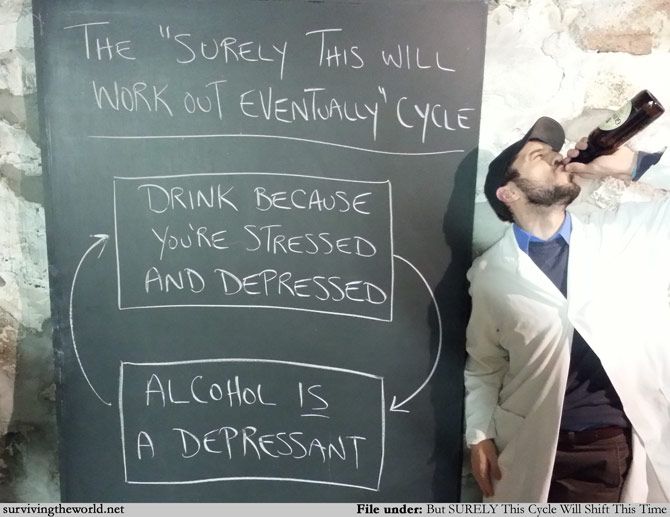 THE "SURELY THIS WILL
WORK OUT EVENTUALLY" CYCLE
DRINK BECAUSE
YOU'RE STRESSED
AND DEPRESSED
ALCOHOL IS
A DEPRESSANT
survivingtheworld.net
File under: But SURELY This Cycle Will Shift This Time